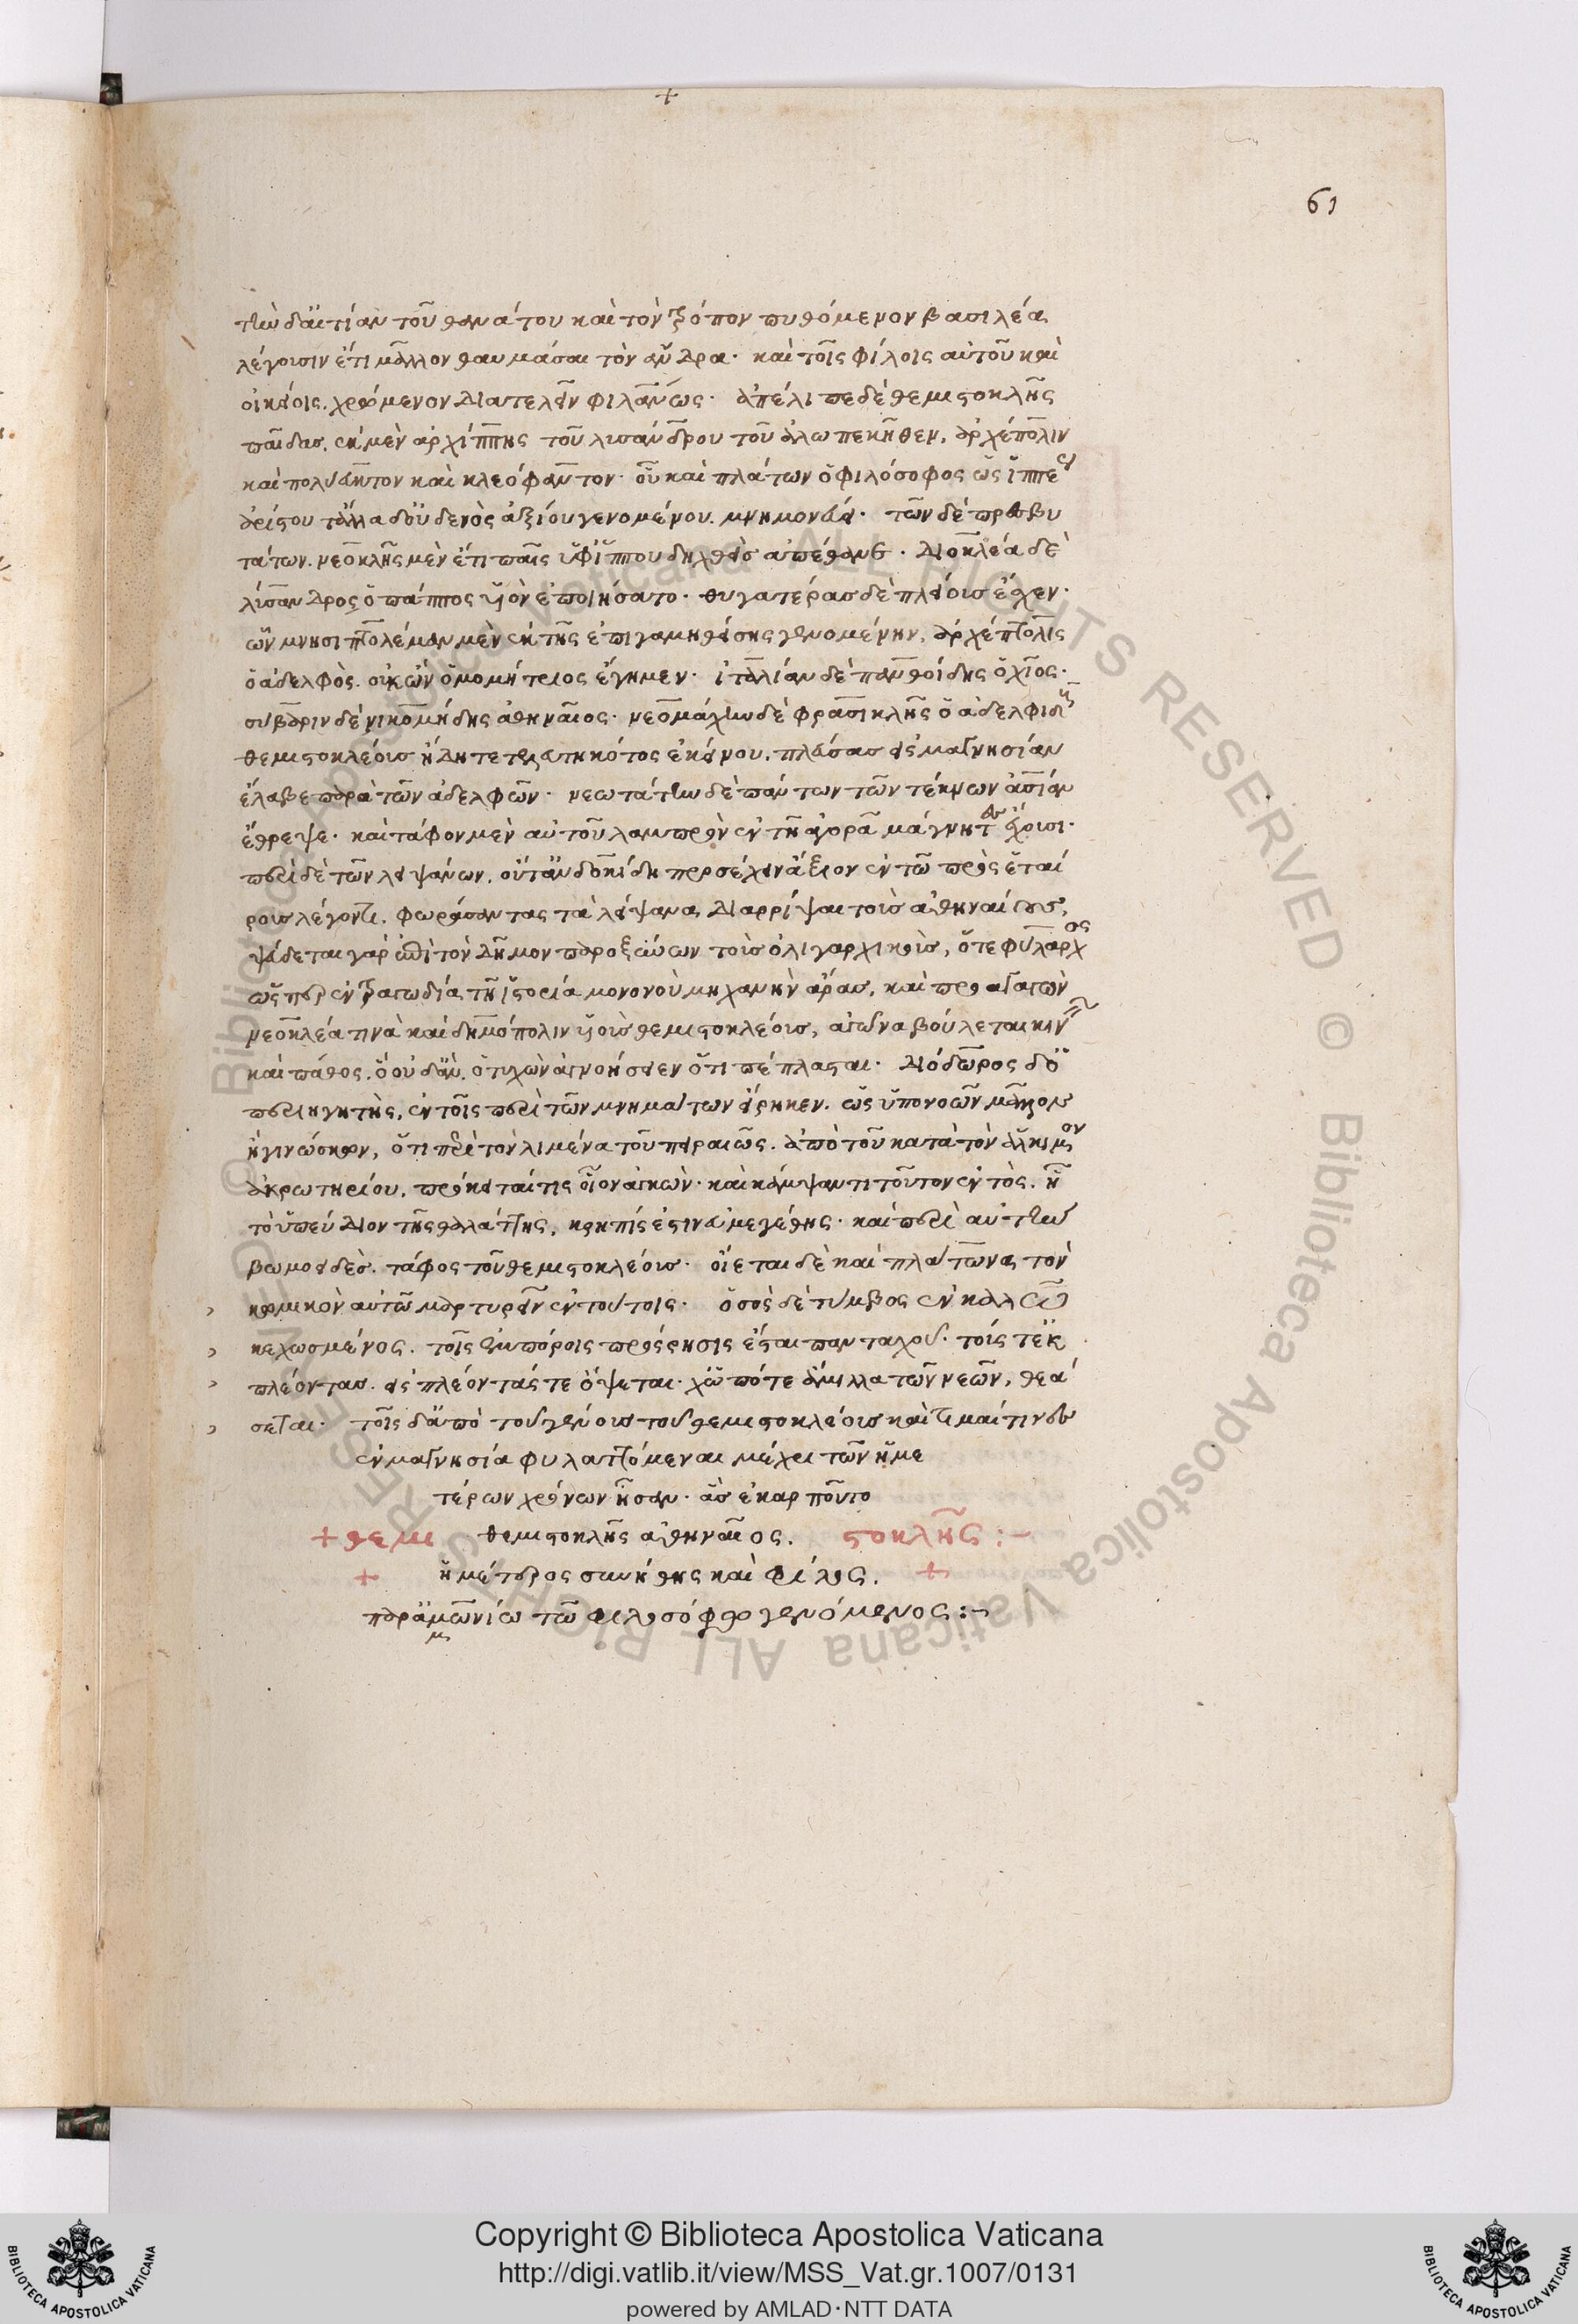 61
τὴν δ' αἰτίαν τοῦ θανάτου καὶ τὸν τρόπον πυθόμενον βασιλέα
λέγουσιν ἔτι μᾶλλον θαυμάσαι τὸν ἄνδρα· καὶ τοῖς φίλοις αὐτοῦ καὶ
οἰκείοις. χρώμενον διατελεῖν φιλανθρώπως· ἀπέλιπε δὲ θεμιστοκλῆς
παῖδας. ἐκ μὲν ἀρχίππης τοῦ λυσάνδρου τοῦ ἀλωπεκῆθεν. ἀρχέπολιν
καὶ πολύευκτον καὶ κλεόφαντον· οὗ καὶ πλάτων ὁ φιλόσοφος ὡς ἱππέως
ἀρίστου τἄλλα δ' οὐδενὸς ἀξίου γενομένου. μνημονεύει· τῶν δὲ πρεσβυ
τάτων. νεοκλῆς μὲν ἔτι παῖς ὑφ' ἵππου δηχθεὶς ἀπέθανε· διοκλέα δὲ
λύσανδρος ὁ πάππος υἱὸν ἐποιήσατο· θυγατέρας δὲ πλείους ἔσχεν·
ὧν μνησιπτολέμαν μὲν ἐκ τῆς ἐπιγαμηθείσης γενομένην, ἀρχέπτολις
ὁ ἀδελφὸς. οὐκ ὢν ὁμομήτριος ἔγημεν· ἰταλίαν δὲ πανθοίδης ὁ χῖος·
σύβαριν δὲ νικομήδης ἀθηναῖος· νεομάχην δὲ φρασικλῆς ὁ ἀδελφιδοῦς
θεμιστοκλέους ἤδη τετελευτηκότος ἐκείνου. πλεύσας εἰς μαγνησίαν
ἔλαβε παρὰ τῶν ἀδελφῶν· νεωτάτην δὲ πάντων τῶν τέκνων ἀσίαν
ἔθρεψε· καὶ τάφον μὲν αὐτοῦ λαμπρὸν ἐν τῇ ἀγορᾷ μάγνητες ἔχουσι·
περὶ δὲ τῶν λειψάνων. οὔτ' ἀνδοκίδῃ προσέχειν ἄξιον ἐν τῷ πρὸς ἑταί
ρους λέγοντι. φωράσαντας τὰ λείψανα διαρρίψαι τοὺς ἀθηναίους,
ψεύδεται γὰρ ἐπὶ τὸν δῆμον παροξύνων τοὺς ὀλιγαρχικοὺς, ὅτε φύλαρχος
ὥσπερ ἐν τραγωδία τῇ ἱστορία μονονοὺ μηχανὴν ἄρας. καὶ προαγαγὼν
νεοκλέα τινὰ καὶ δημόπολιν υἱοὺς θεμιστοκλέους, ἀγῶνα βούλεται κινεῖν
καὶ πάθος. ὃ οὐδ' ἂν. ὁ τυχὼν ἀγνοήσειεν ὅτι πέπλασται· διόδωρος δ' ὁ
περιηγητὴς, ἐν τοῖς περὶ τῶν μνημάτων εἴρηκεν. ὡς ὑπονοῶν μᾶλλον
ἢ γινώσκων, ὅτι περὶ τὸν λιμένα τοῦ πειραιῶς. ἀπὸ τοῦ κατὰ τὸν ἄλκιμον
ἀκρωτηρίου. πρόκειταί τις οἷον ἀγκὼν· καὶ κάμψαντι τοῦτον ἐντὸς. ᾗ
τὸ ὑπεύδιον τῆς θαλάττης, κρηπίς ἐστιν εὐμεγέθης· καὶ περὶ αὐτὴν
βωμοειδὲς. τάφος τοῦ θεμιστοκλέους· οἴεται δὲ καὶ πλάτωνα τὸν
κωμικὸν αὐτῷ μαρτυρεῖν ἐν τούτοις· ὁ σὸς δὲ τύμβος ἐν καλῷ
κεχωσμένος. τοῖς ἐμπόροις πρόσρησις ἔσται πανταχοῦ· τούς τ' ἐκ
πλέοντας. εἰσπλέοντάς τε ὄψεται· χὠπότε ἅμιλλα τῶν νεῶν, θεά
σεται· τοῖς δ' ἀπὸ τοῦ γένους τοῦ θεμιστοκλέους καὶ τιμαί τινες
ἐν μαγνησία φυλαττόμεναι μέχρι τῶν ἡμε
τέρων χρόνων ἦσαν· ἃς ἐκαρποῦτο
+ θεμι θεμιστοκλῆς ἀθηναῖος. στοκλῆς :-
+ ἡμέτερος συνήθης καὶ φίλος. +
παρ' ἀμμωνίω τῷ φιλοσόφω γενόμενος :-
Copyright © Biblioteca Apostolica Vaticana
http://digi.vatlib.it/view/MSS_Vat.gr.1007/0131
powered by AMLAD·NTT DATA